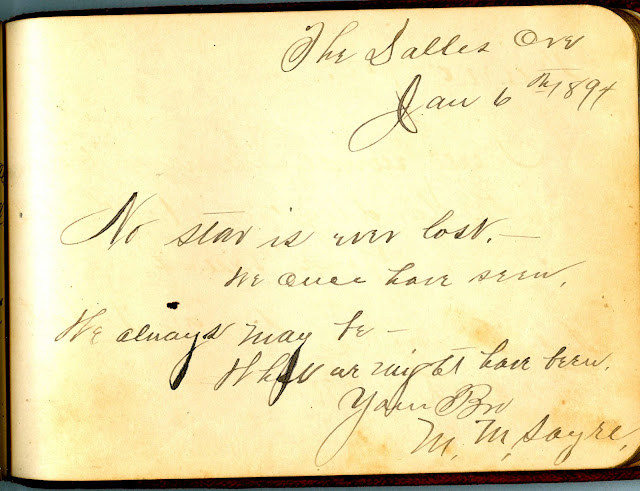 The Dalles Ore
Jan 6th 1894
No star is ever lost. —
We once have seen,
We always may be —
What we might have been.
Your Bro
M. M. Sayre,